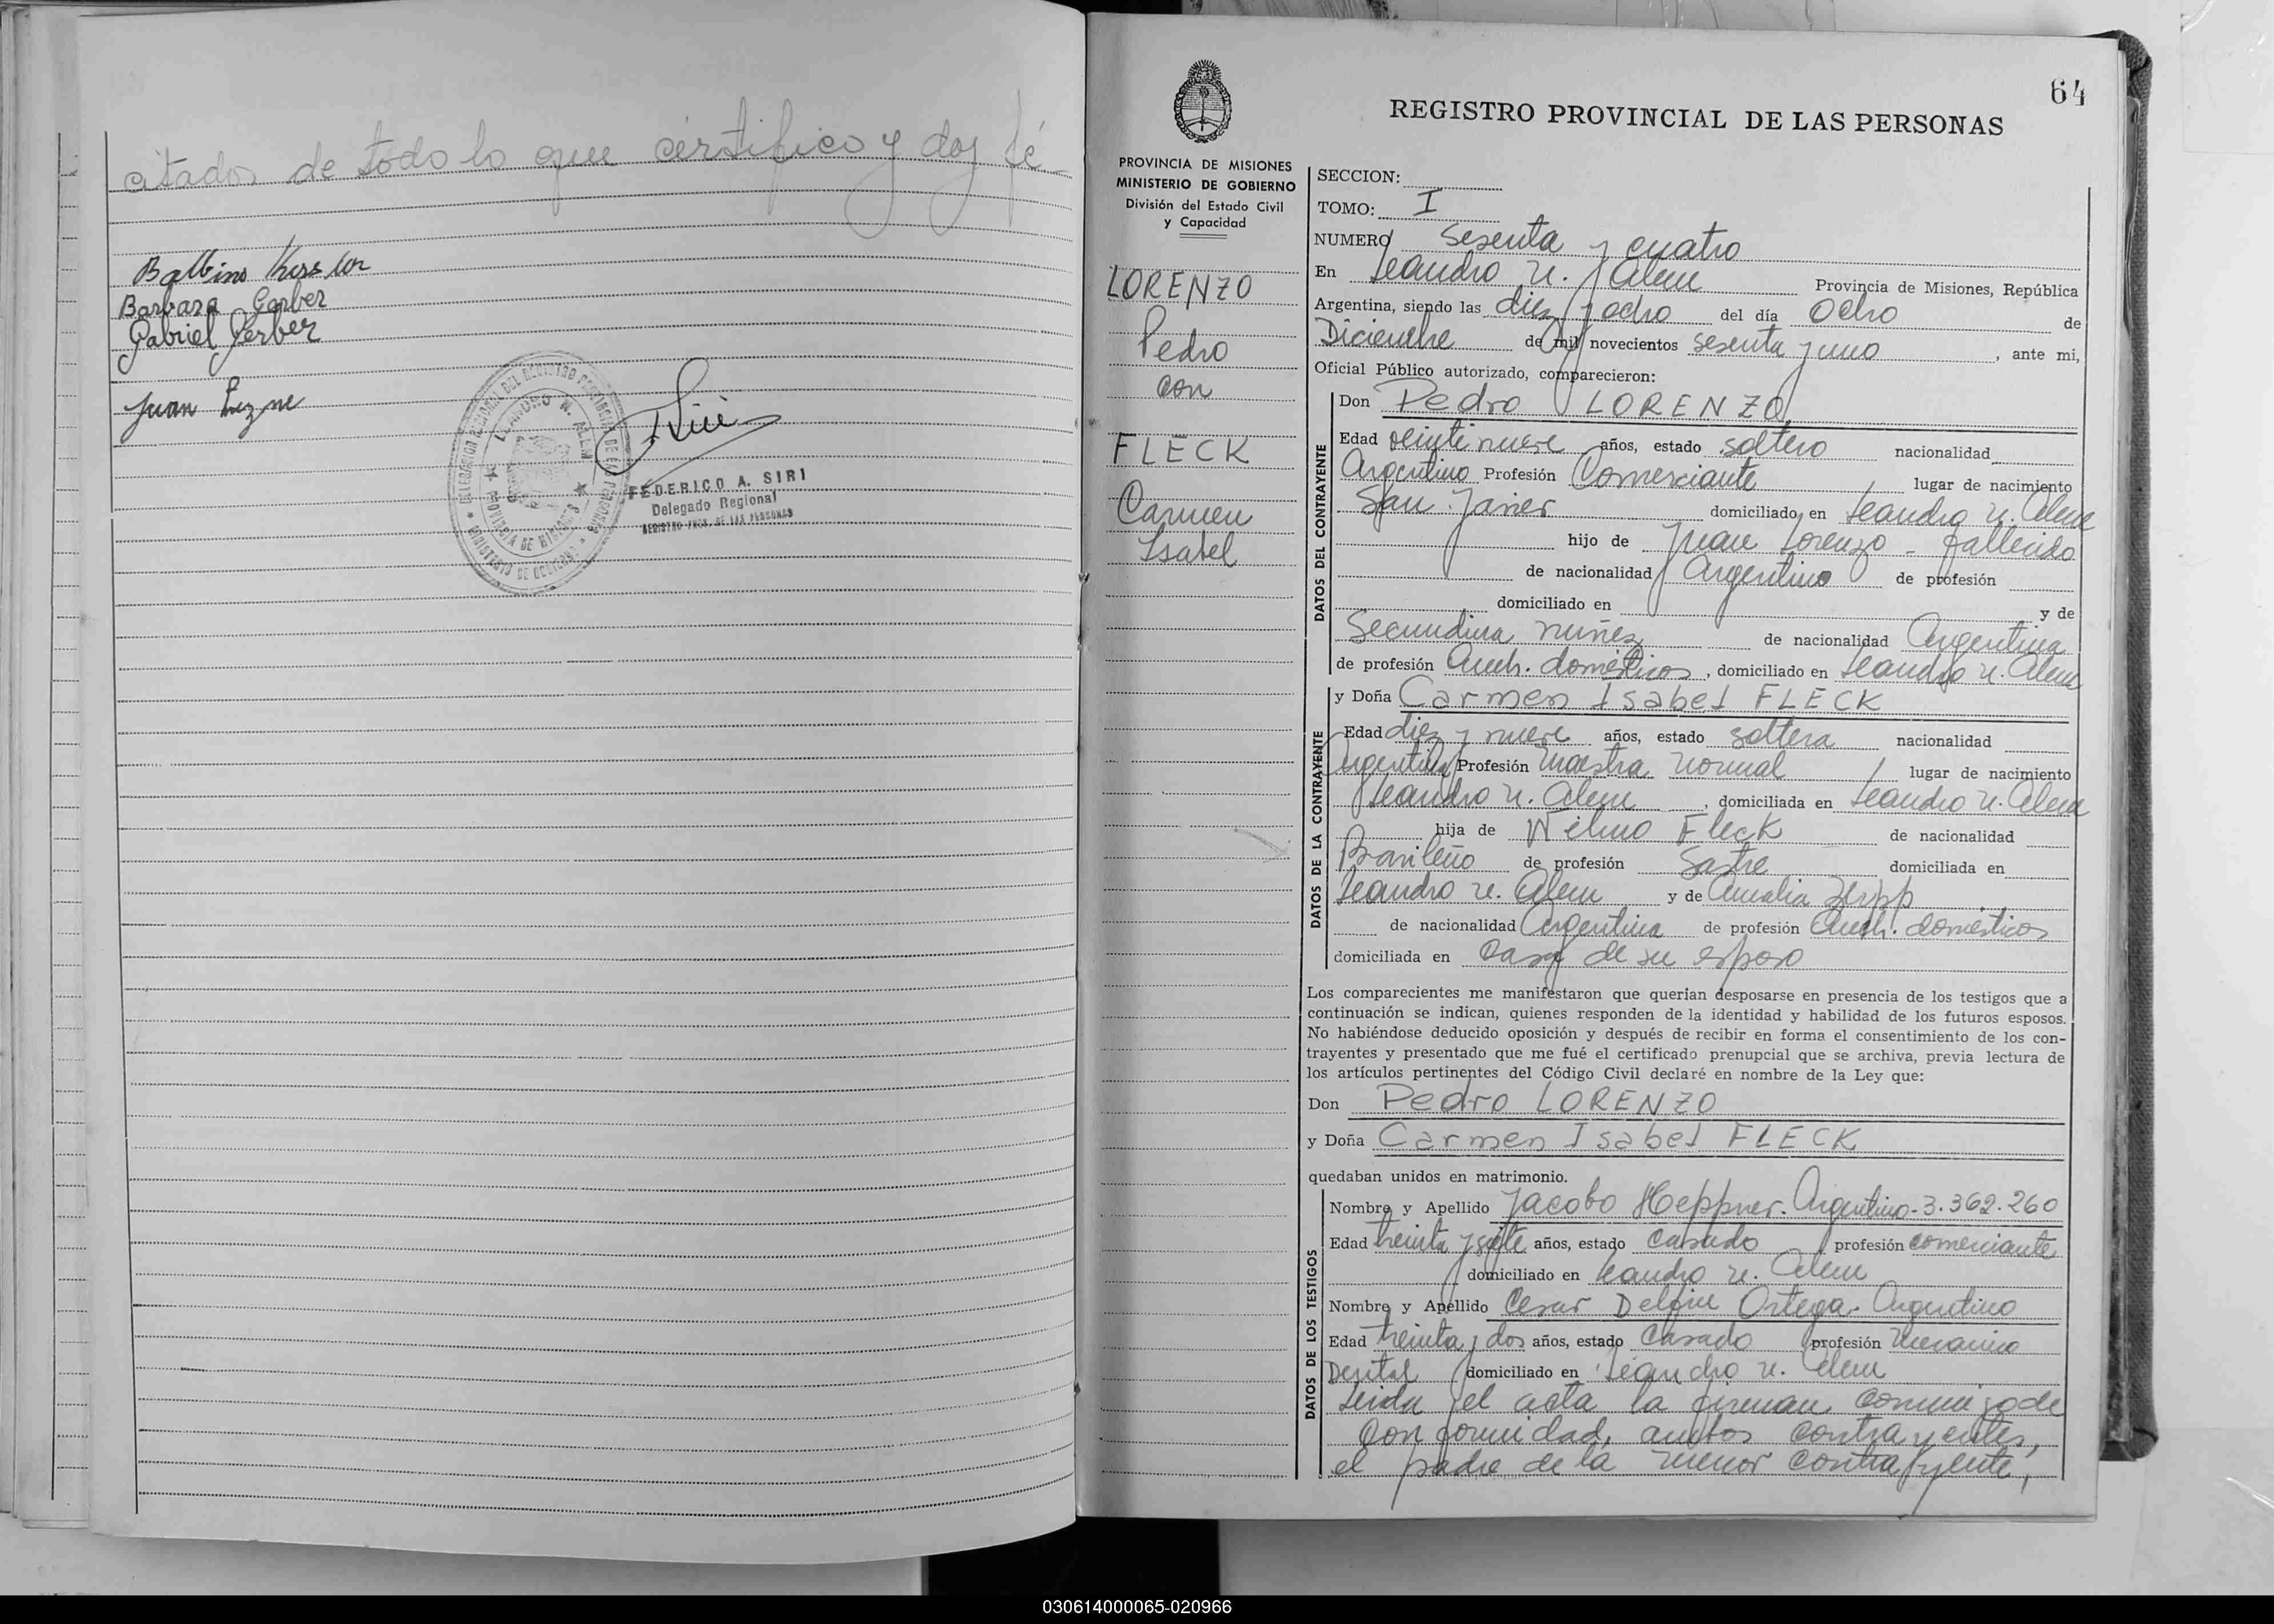 citados de todo lo que certifico y doy fé
Balbino Kessler
Barbara Gerber
Gabriel Gerber
Juan
FEDERICO A. SIRI
Delegado Regional
REGISTRO PROV. DE LAS PERSONAS
LEANDRO N. ALEM
PROVINCIA DE MISIONES
64
REGISTRO PROVINCIAL DE LAS PERSONAS
PROVINCIA DE MISIONES
MINISTERIO DE GOBIERNO
División del Estado Civil
y Capacidad
LORENZO
Pedro
con
FLECK
Carmen
Isabel
SECCION:
TOMO: I
NUMERO sesenta y cuatro
En Leandro N. Alem Provincia de Misiones, República
Argentina, siendo las diez y ocho del día Ocho de
Diciembre de mil novecientos sesenta y uno, ante mi,
Oficial Público autorizado, comparecieron:
DATOS DEL CONTRAYENTE
Don Pedro LORENZO
Edad veintinueve años, estado soltero nacionalidad
Argentino Profesión Comerciante lugar de nacimiento
San Javier domiciliado en Leandro N. Alem
hijo de Juan Lorenzo - fallecido
de nacionalidad Argentino de profesión
domiciliado en y de
Secundina Nuñez de nacionalidad Argentina
de profesión Queh. domésticos, domiciliado en Leandro N. Alem
DATOS DE LA CONTRAYENTE
y Doña Carmen Isabel FLECK
Edad diez y nueve años, estado soltera nacionalidad
Argentina Profesión Maestra Normal lugar de nacimiento
Leandro N. Alem, domiciliada en Leandro N. Alem
hija de Wilmo Fleck de nacionalidad
Brasileño de profesión Sastre domiciliada en
Leandro N. Alem y de Amalia
de nacionalidad Argentina de profesión Queh. domésticos
domiciliada en Casa de su esposo
Los comparecientes me manifestaron que querían desposarse en presencia de los testigos que a
continuación se indican, quienes responden de la identidad y habilidad de los futuros esposos.
No habiéndose deducido oposición y después de recibir en forma el consentimiento de los con-
trayentes y presentado que me fué el certificado prenupcial que se archiva, previa lectura de
los artículos pertinentes del Código Civil declaré en nombre de la Ley que:
Don Pedro LORENZO
y Doña Carmen Isabel FLECK
quedaban unidos en matrimonio.
DATOS DE LOS TESTIGOS
Nombre y Apellido Jacobo Heppner. Argentino - 3.362.260
Edad treinta y siete años, estado casado profesión comerciante
domiciliado en Leandro N. Alem
Nombre y Apellido Cesar Delfin Ortega. Argentino
Edad treinta y dos años, estado Casado profesión Mecanico
Dental domiciliado en Leandro N. Alem
Leida el acta la firman conmigo de
Conformidad, ambos contrayentes,
el padre de la menor contrayente,
030614000065-020966